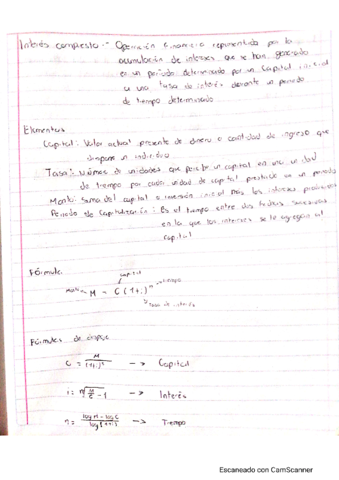 Interés compuesto.- Operación financiera representada por la
acumulación de intereses que se han generado
en un período determinado por un capital inicial
a una tasa de interés durante un periodo
de tiempo determinado
Elementos
Capital: Valor actual presente de dinero o cantidad de ingreso que
dispone un individuo
Tasa: número de unidades que percibe un capital en una unidad
de tiempo por cada unidad de capital prestado en un periodo
Monto: Suma del capital o inversión inicial más los intereses producidos
Periodo de Capitalización: Es el tiempo entre dos fechas sucesivas
en la que los intereses se le agregan al
capital
Fórmula
capital
M = C (1+i)^n tiempo
Tasa de interés
Fórmulas de despeje
C = M/(1+i)^n --> Capital
i = n√(M/C) - 1 --> Interés
n = (log M - log C)/log(1+i) --> Tiempo
Escaneado con CamScanner